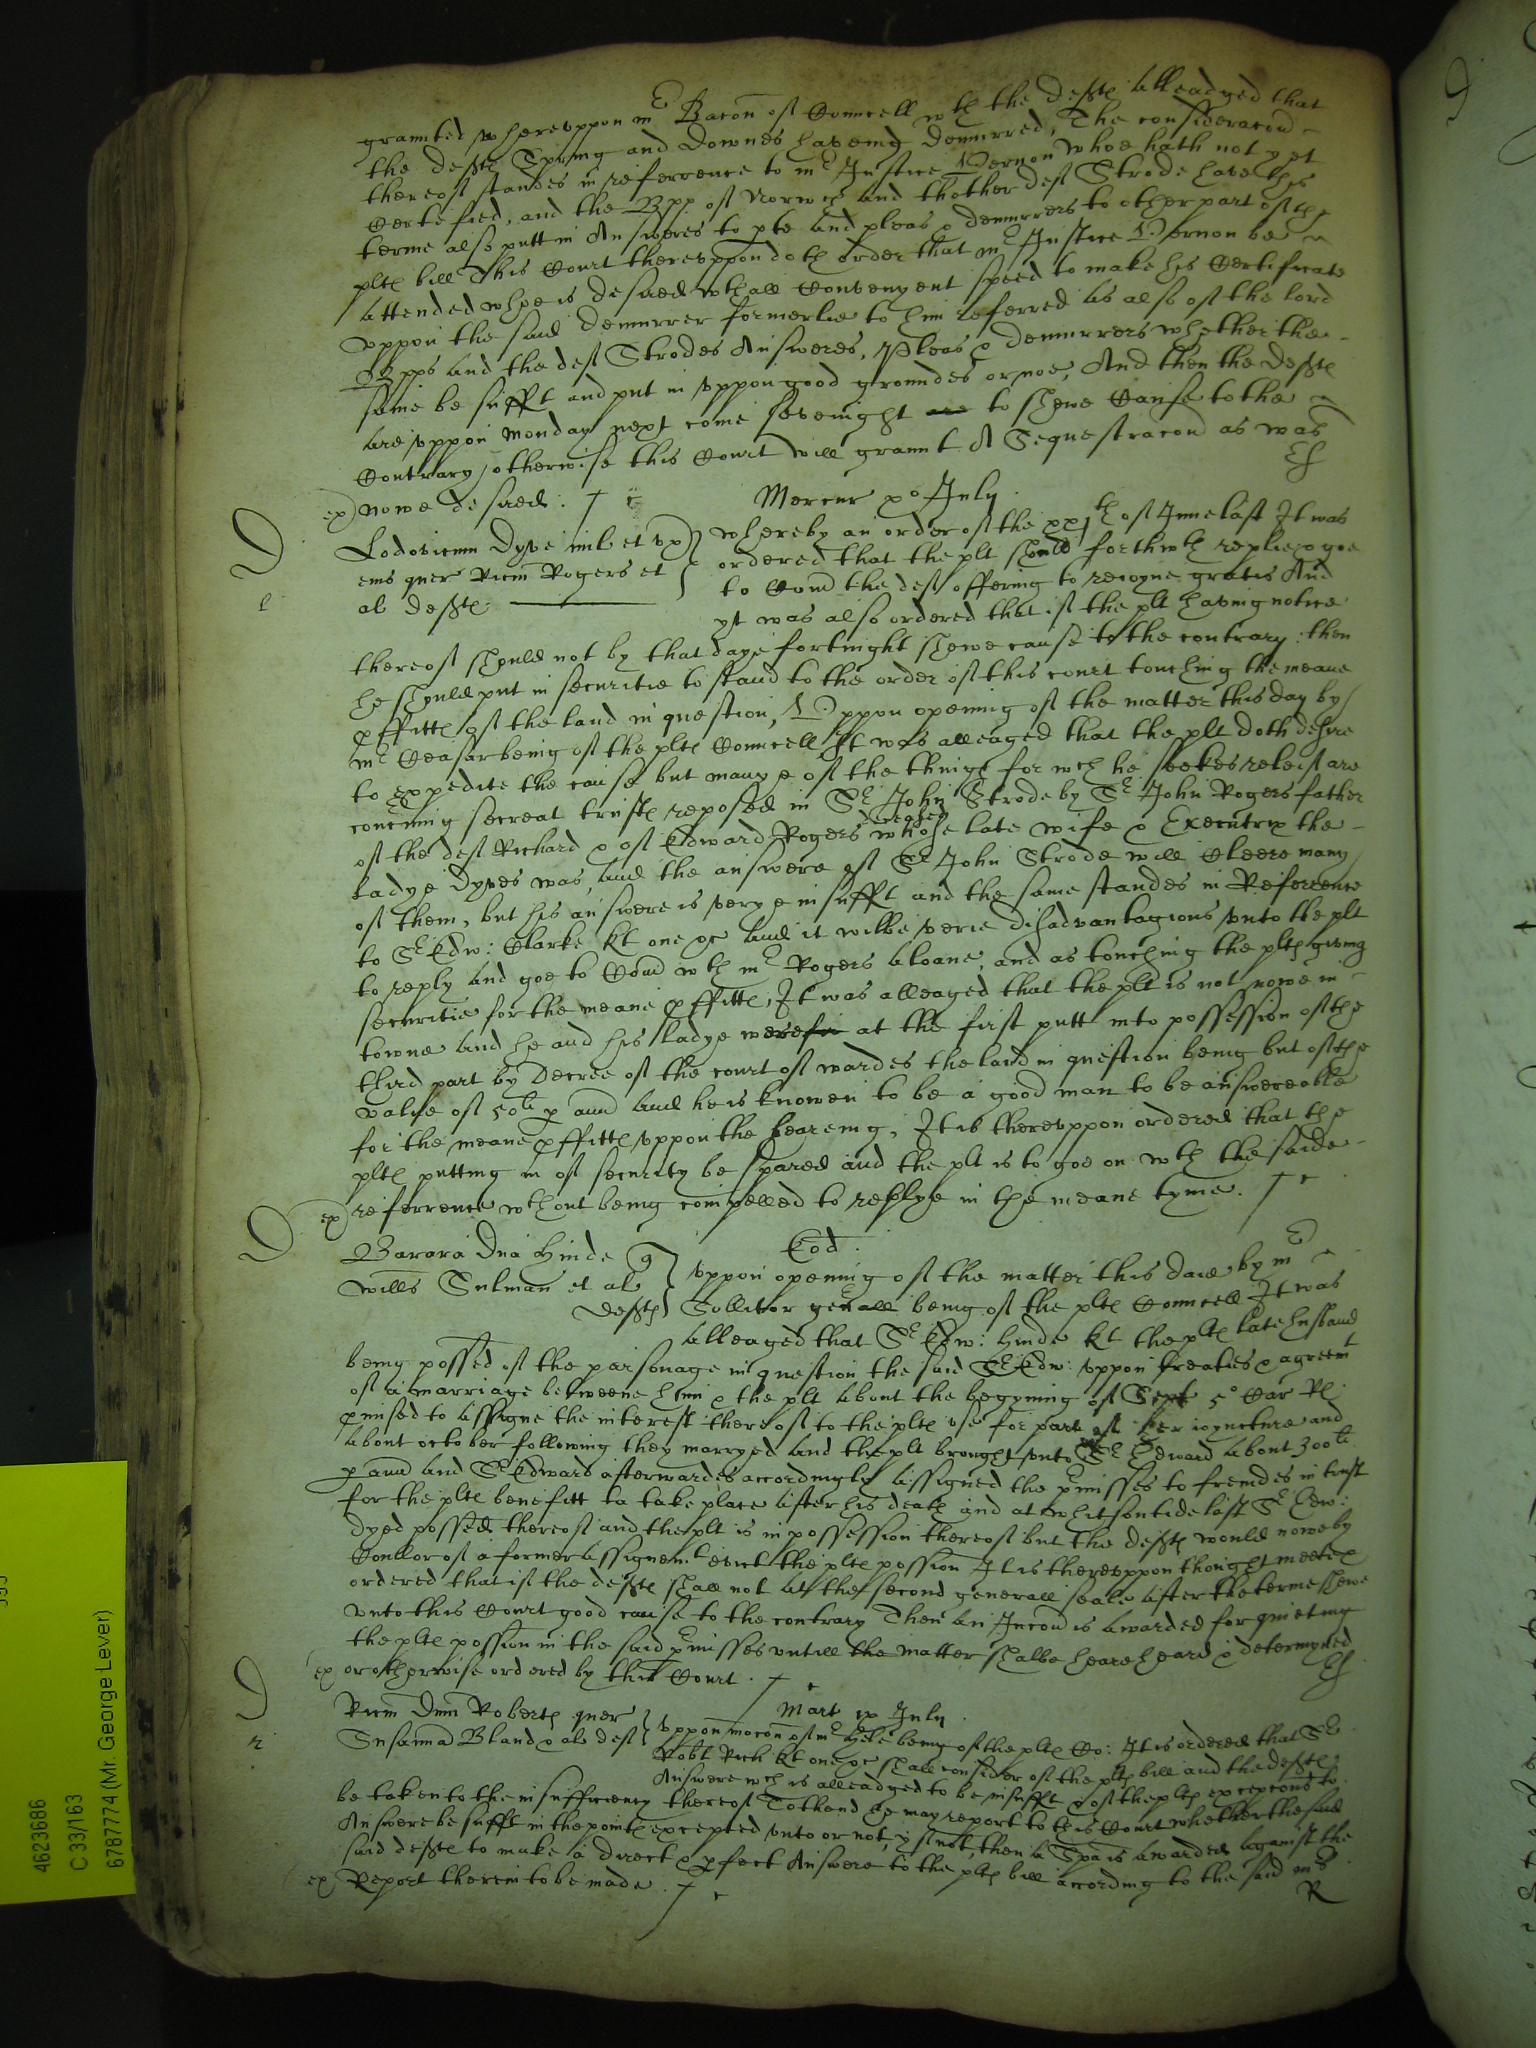 graunted whereuppon mr Bacon of Councell wth the defte alleadged that
the defte Spring and Downes haveing demurred, The consideracon
thereof standes in referrence to mr Justice Vernon whoe hath not yet
Certefied, and the Bpp of Norwch and thother deft Strode have this
terme also putt in Answeres to pte and pleas & demurrers to other part of the
plte bill This Court thereuppon doth order that mr Justice Vernon be
attended whoe is desired wth all Convenyent speed to make his Certificate
uppon the said demurrer formerlie to him referred as also of the lord
Bpps and the deft Strodes Answeres, Pleas & demurrers whether the
same be sufft and put in uppon good groundes or noe, And then the defte
are uppon Monday next come sevenight are to shewe Cause to the
Contrary, otherwise this Court will graunt A Sequestracon as was
ex nowe desired.
Mercur xo July
Lodovicum Dyve mil et ux
eius quer Ricm Rogers et
al defte
whereby an order of the xxjth of June last It was
ordered that the plt should forthwth replie & goe
to Comd the deft offering to rejoyne gratis And
yt was also ordered that if the plt having notice
thereof should not by that daye fortnight shewe cause to the contrary then
he should put in securitie to stand to the order of this court touching the meane
pffitte of the land in question, Uppon opening of the matter this day by
mr Ceasar being of the plte Councell It was alleaged that the plt doth desire
to expedite the cause but manye of the thinge for wch he seekes releif are
concerning secreat truste reposed in Sr John Strode by Sr John Rogers father
of the deft Richard & of Edward Rogers deceased whose late wife & Executrix the
ladye Dyves was, and the answere of Sr John Strode will Cleere many
of them, but his answere is verye insufft and the same standes in Referrence
to Sr Edw: Clarke kt one &c and it wilbe verie disadvantagious unto the plt
to reply and goe to Comd wth mr Rogers aloane, and as touching the plte giving
securitie for the meane pffitte, It was alleaged that the plt is not nowe in
towne and he and his ladye were at the first putt into possession of the
third part by decree of the court of wardes the land in question being but of the
value of 50li p ann and he is knowen to be a good man to be answereable
for the meane pffitte uppon the heareing, It is thereuppon ordered that the
plte putting in of security be spared and the plt is to goe on wth the saide
ex referrence wthout being compelled to replye in the meane tyme.
Eod:
Barara Dna Hinde q
Willm Sulman et al
defte
uppon opening of the matter this daie by mr
Sollicitor gerall being of the plte Councell It was
alleaged that Sr Edw: Hinde kt the plte late husband
being possed of the parsonage in question the said Sr Edw: uppon treaties & agreemt
of a marriage betweene him & the plt about the begyning of Sept 5o Car Rs
pmised to assigne the interest thereof to the plte use for part of her ioyncture and
about october following they marryed and the plt brought unto Sr Edward about 300li
p ann and Sr Edward afterwardes accordingly assigned the pmisses to freindes in trust
for the plte benefitt to take place after his death and at whitsontide last Sr Edw:
dyed possed thereof and the plt is in possession thereof but the defte would nowe by
Coullor of a former assignemt evict the plte possion It is thereuppon thought meete &
ordered that if the defte shall not at the second generall seale after the terme shewe
unto this Court good cause to the contrary Then an Iniuncon is awarded for quieting
the plte possion in the said pmisses untill the matter shalbe heare heard & determyned
ex or otherwise ordered by this Court.
Mart ix July
Ricm Dnm Roberte quer
Susanna Bland & al deft
uppon mocon of mr Hele being of the plte Co: It is ordered that Sr
Robt Rich kt one &c shall consider of the plte bill and the defte
Answere wch is alleadged to be insufft & of the plte excepcons to
be taken to the insufficiency thereof Tothend he may report to this Court whether the said
Answere be sufft in the pointe excepted unto or not, yf not, then a Spa is awarded against the
said defte to make a direct & pfect Answere to the plte bill according to the said mr
ex Report therein to be made.
R
4623686
C 33/163
6787774 (Mr. George Lever)